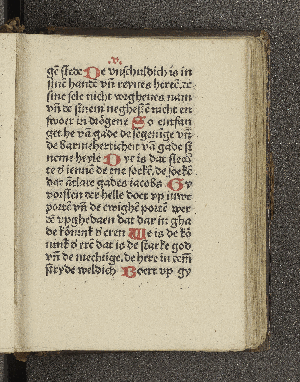 .v.
gē stede De vnschuldich is in
sinē handē vn̄ reynes hertē. de
sine sele nicht vorgheues nam
vn̄ de sinem neghestē nicht en
swoer in drōgene So entfan
get he vā gade de segenige vn̄
de barmeherticheit vā gade si
neme heyle Dyt is dat slech
te d' iennē de ene sokē. de sokē
dat ātlate gades iacobs Gy
vorsten der helle doet vp iuwe
portē vn̄ de ewighē portē wer
rē vpghedaen dat dar in gha
de konink d' eren We is de ko
nink d' erē dat is de starke god
vn̄ de mechtige. de here in dem
stryde weldich Boert vp gy